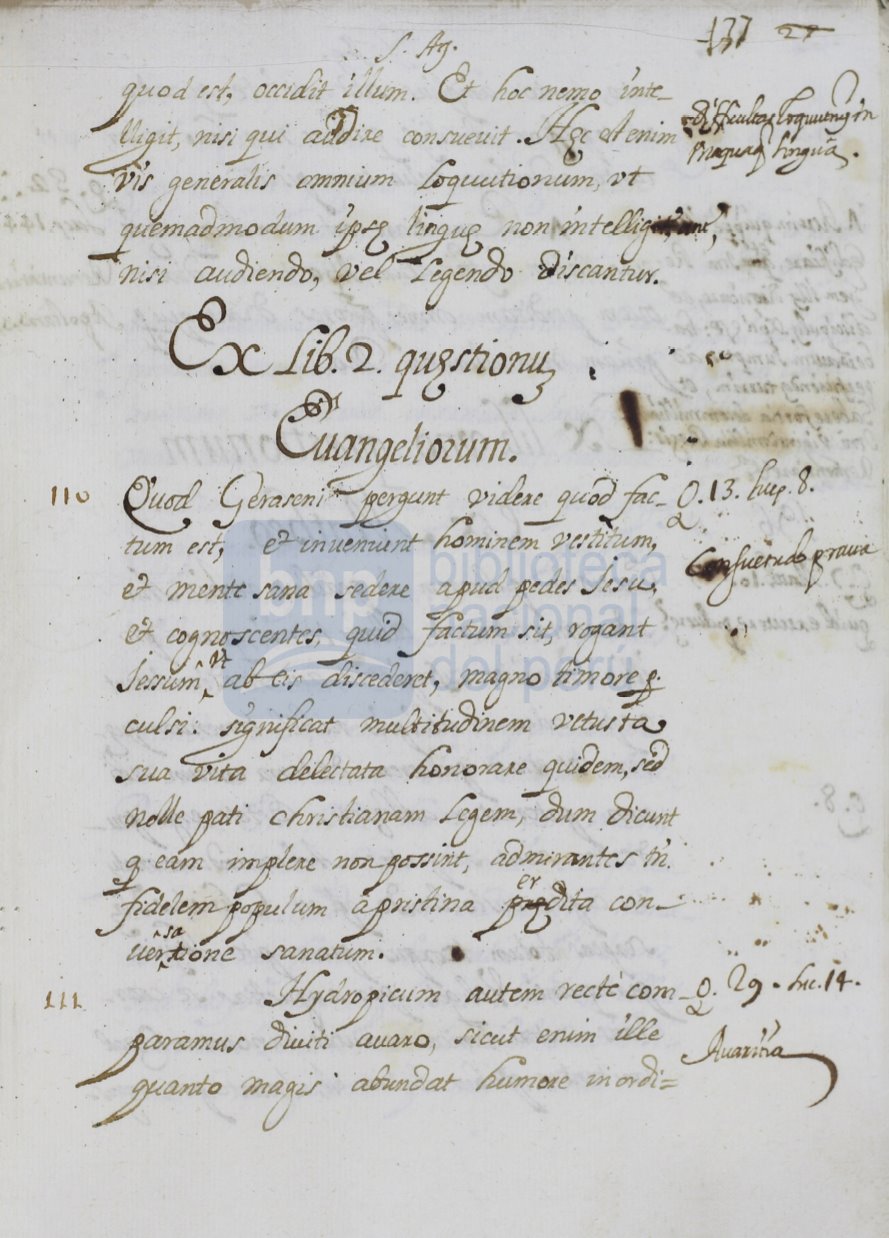 S. Ag.
137 27
quod est, occidit illum. Et hoc nemo inte-
lligit, nisi qui audire consuevit. Hęc est enim
vis generalis omnium Loquutionum, vt
quemadmodum ipsę linguę non intelligit
nisi audiendo, vel Legendo discantur.
difficultas Loquutionu in
linguâ.
Ex Lib. 2. quęstionu
Euangeliorum.
110 Quod Geraseni pergunt videre quod fac-
tum est, et inveniunt hominem vestitum,
et mente sana sedere apud pedes Iesu,
et cognoscentes, quid factum sit, rogant
Iessum vt ab eis discederet, magno timore p.
culsi: significat multitudinem vetusta
sua vita delectata honorare quidem, sed
nolle pati Christianam Legem, dum dicunt
q eam implere non possint, admirantes tn.
fidelem populum a pristina pędita er con-
uertione sa sanatum.
Q. 13. Luc. 8.
Consuetudo praua
111 Hydropicum autem recté com-
paramus diuiti auaro, sicut enim ille
quanto magis abundat humore inordi=
Q. 29. Luc. 14.
Auaritia
bnp biblioteca
nacional
del perú